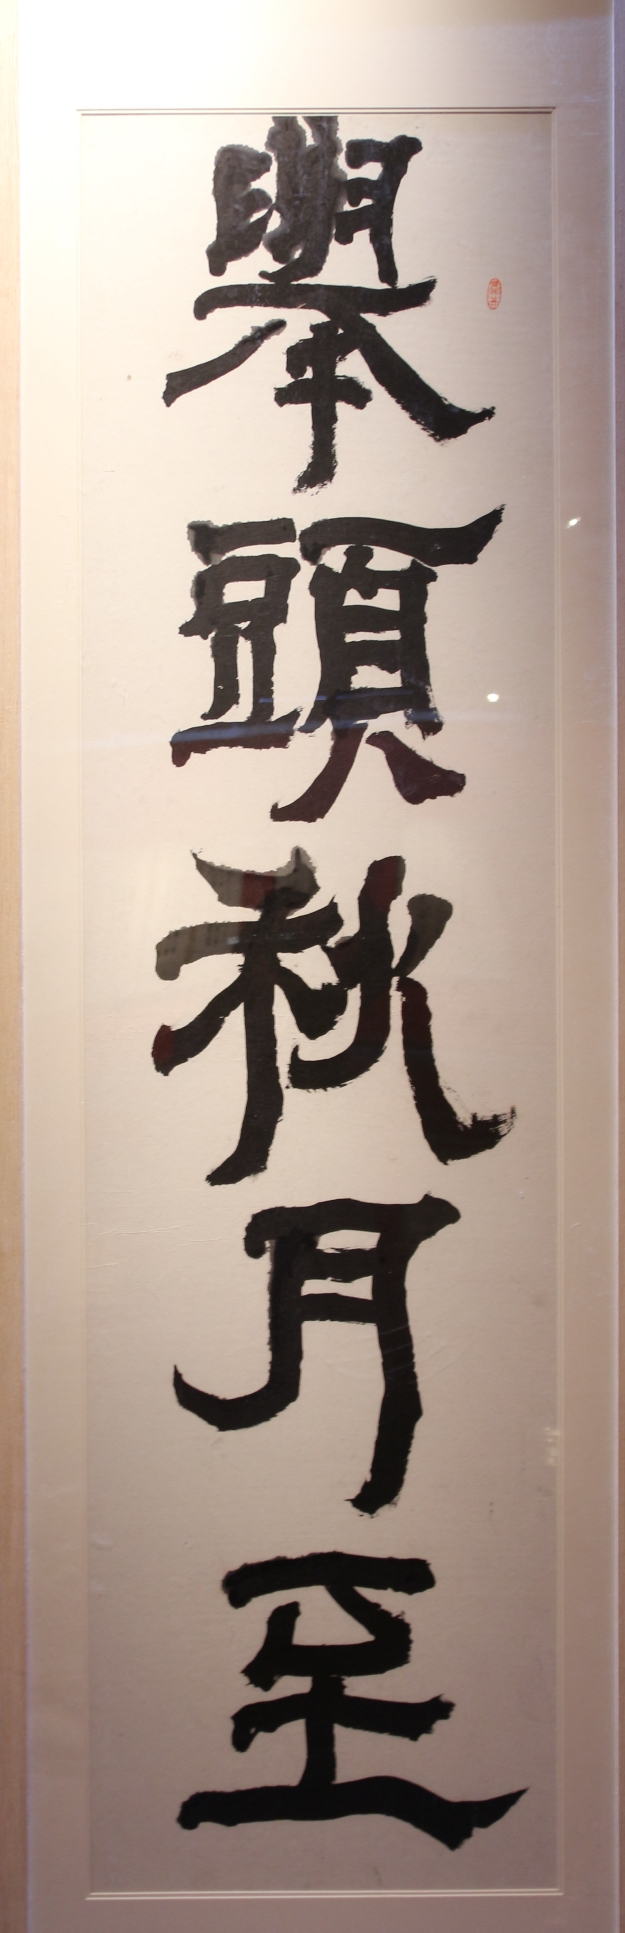 舉頭秋月至